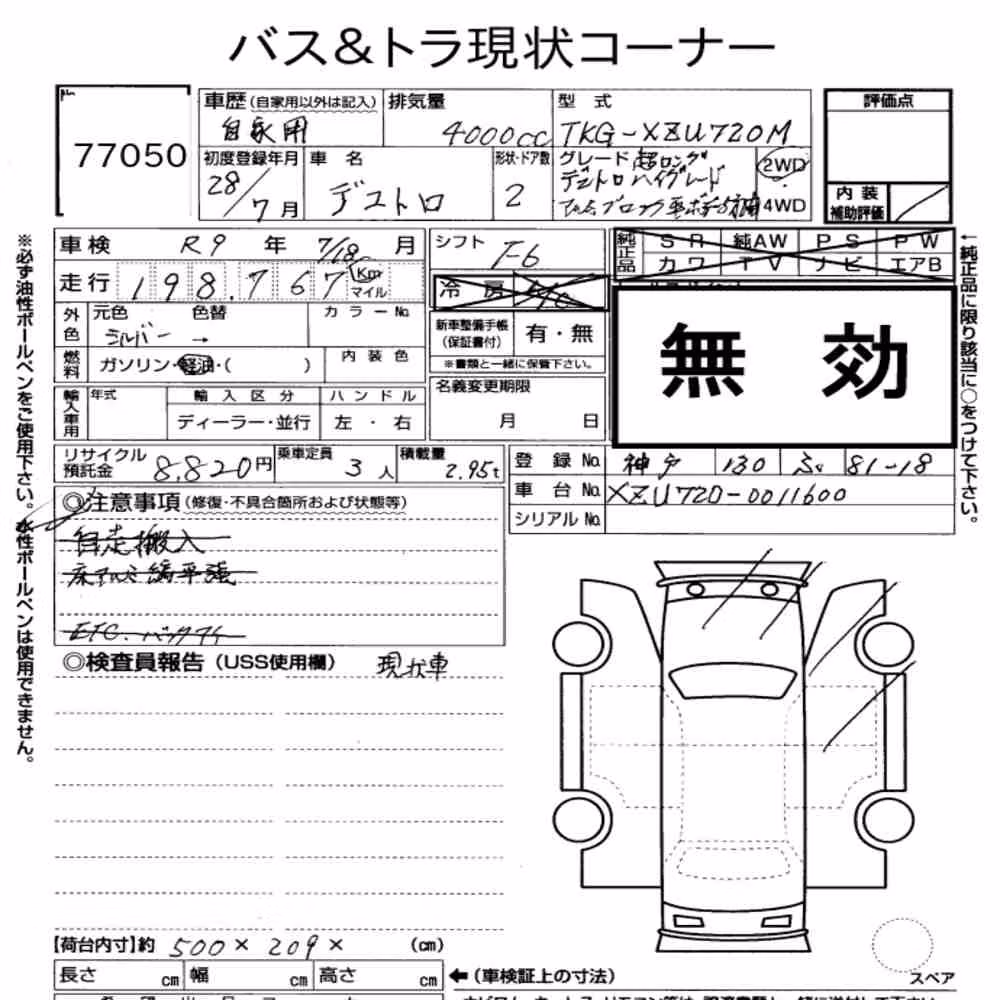 バス&トラ現状コーナー
77050
車歴(自家用以外は記入)
自家用
排気量
4000cc
型式
TKG-XZU720M
評価点
初度登録年月
28/7月
車名
デュトロ
形状・ドア数
2
グレード 超ロング
デュトロ ハイグレード
2WD
4WD
内装
補助評価
車検 R9年 7/18 月
シフト
F6
純正品
SR 純AW PS PW
カワ TV ナビ エアB
走行 198,767 Km マイル
冷房
外色
元色 色替
シルバー →
カラーNo.
新車整備手帳
(保証書付)
有・無
※書類と一緒に保管下さい。
無効
燃料
ガソリン・軽油・( )
内装色
名義変更期限
月 日
輸入車用
年式
輸入区分
ディーラー・並行
ハンドル
左・右
リサイクル
預託金
8,820円
乗車定員
3人
積載量
2.95t
登録No. 神戸 130 81-18
車台No. XZU720-0011600
シリアルNo.
◎注意事項(修復・不具合箇所および状態等)
自走搬入
ETC.
◎検査員報告(USS使用欄) 現状車
※必ず油性ボールペンをご使用下さい。水性ボールペンは使用できません。
←純正品に限り該当に○をつけて下さい。
【荷台内寸】約 500 × 209 × (cm)
長さ cm 幅 cm 高さ cm
←(車検証上の寸法)
スペア